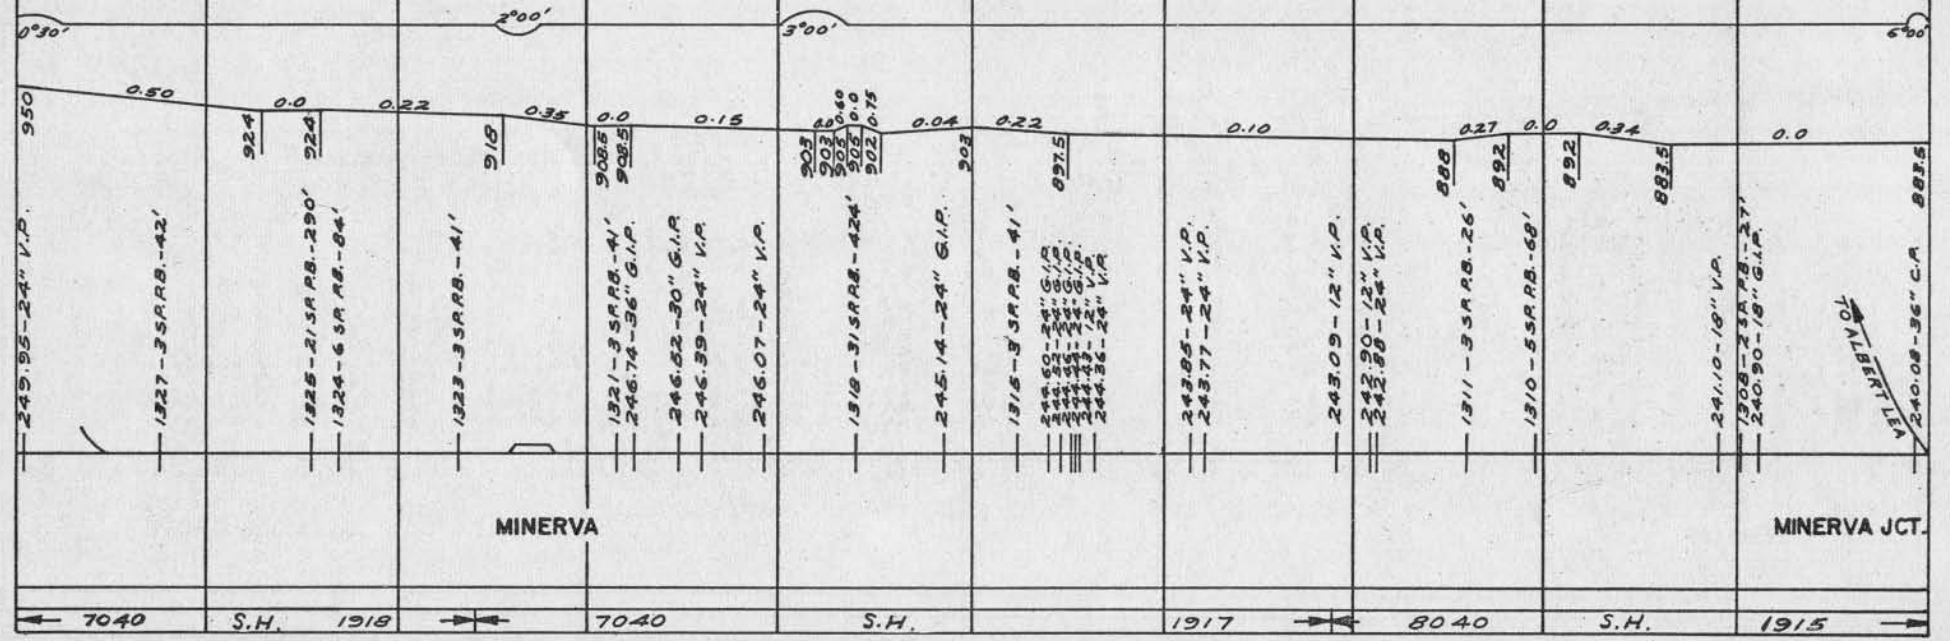 0°30'
2°00'
3°00'
6°00'
0.50
0.0
0.22
0.35
0.0
0.15
0.0
0.60
0.0
0.75
0.04
0.22
0.10
0.27
0.0
0.34
0.0
950
924
924
918
908.5
908.5
903
903
905
905
902
903
897.5
888
892
892
883.5
883.5
249.95-24" V.P.
1327-3 SP. P.B.-42'
1325-21 SP. P.B.-290'
1324-6 SP. P.B.-84'
1323-3 SP. P.B.-41'
1321-3 SP. P.B.-41'
246.74-36" G.I.P.
246.52-30" G.I.P.
246.39-24" V.P.
246.07-24" V.P.
1318-31 SP. P.B.-424'
245.14-24" G.I.P.
1315-3 SP. P.B.-41'
244.60-24" G.I.P.
244.52-24" G.I.P.
244.46-24" G.I.P.
244.44-24" G.I.P.
244.43-12" V.P.
244.36-24" V.P.
243.85-24" V.P.
243.77-24" V.P.
243.09-12" V.P.
242.90-12" V.P.
242.88-24" V.P.
1311-3 SP. P.B.-26'
1310-5 SP. P.B.-68'
241.10-18" V.P.
1308-2 SP. P.B.-27'
240.90-18" G.I.P.
TO ALBERT LEA
240.08-36" C.P.
MINERVA
MINERVA JCT.
7040 S.H. 1918 7040 S.H. 1917 8040 S.H. 1915